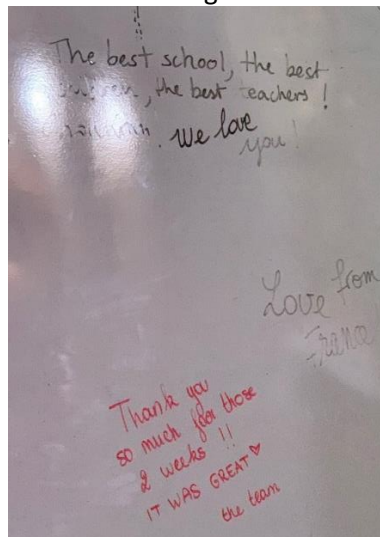 The best school, the best
, the best teachers !
. We love
you!
Love from
France
Thank you
so much for those
2 weeks !!
IT WAS GREAT ♡
the team